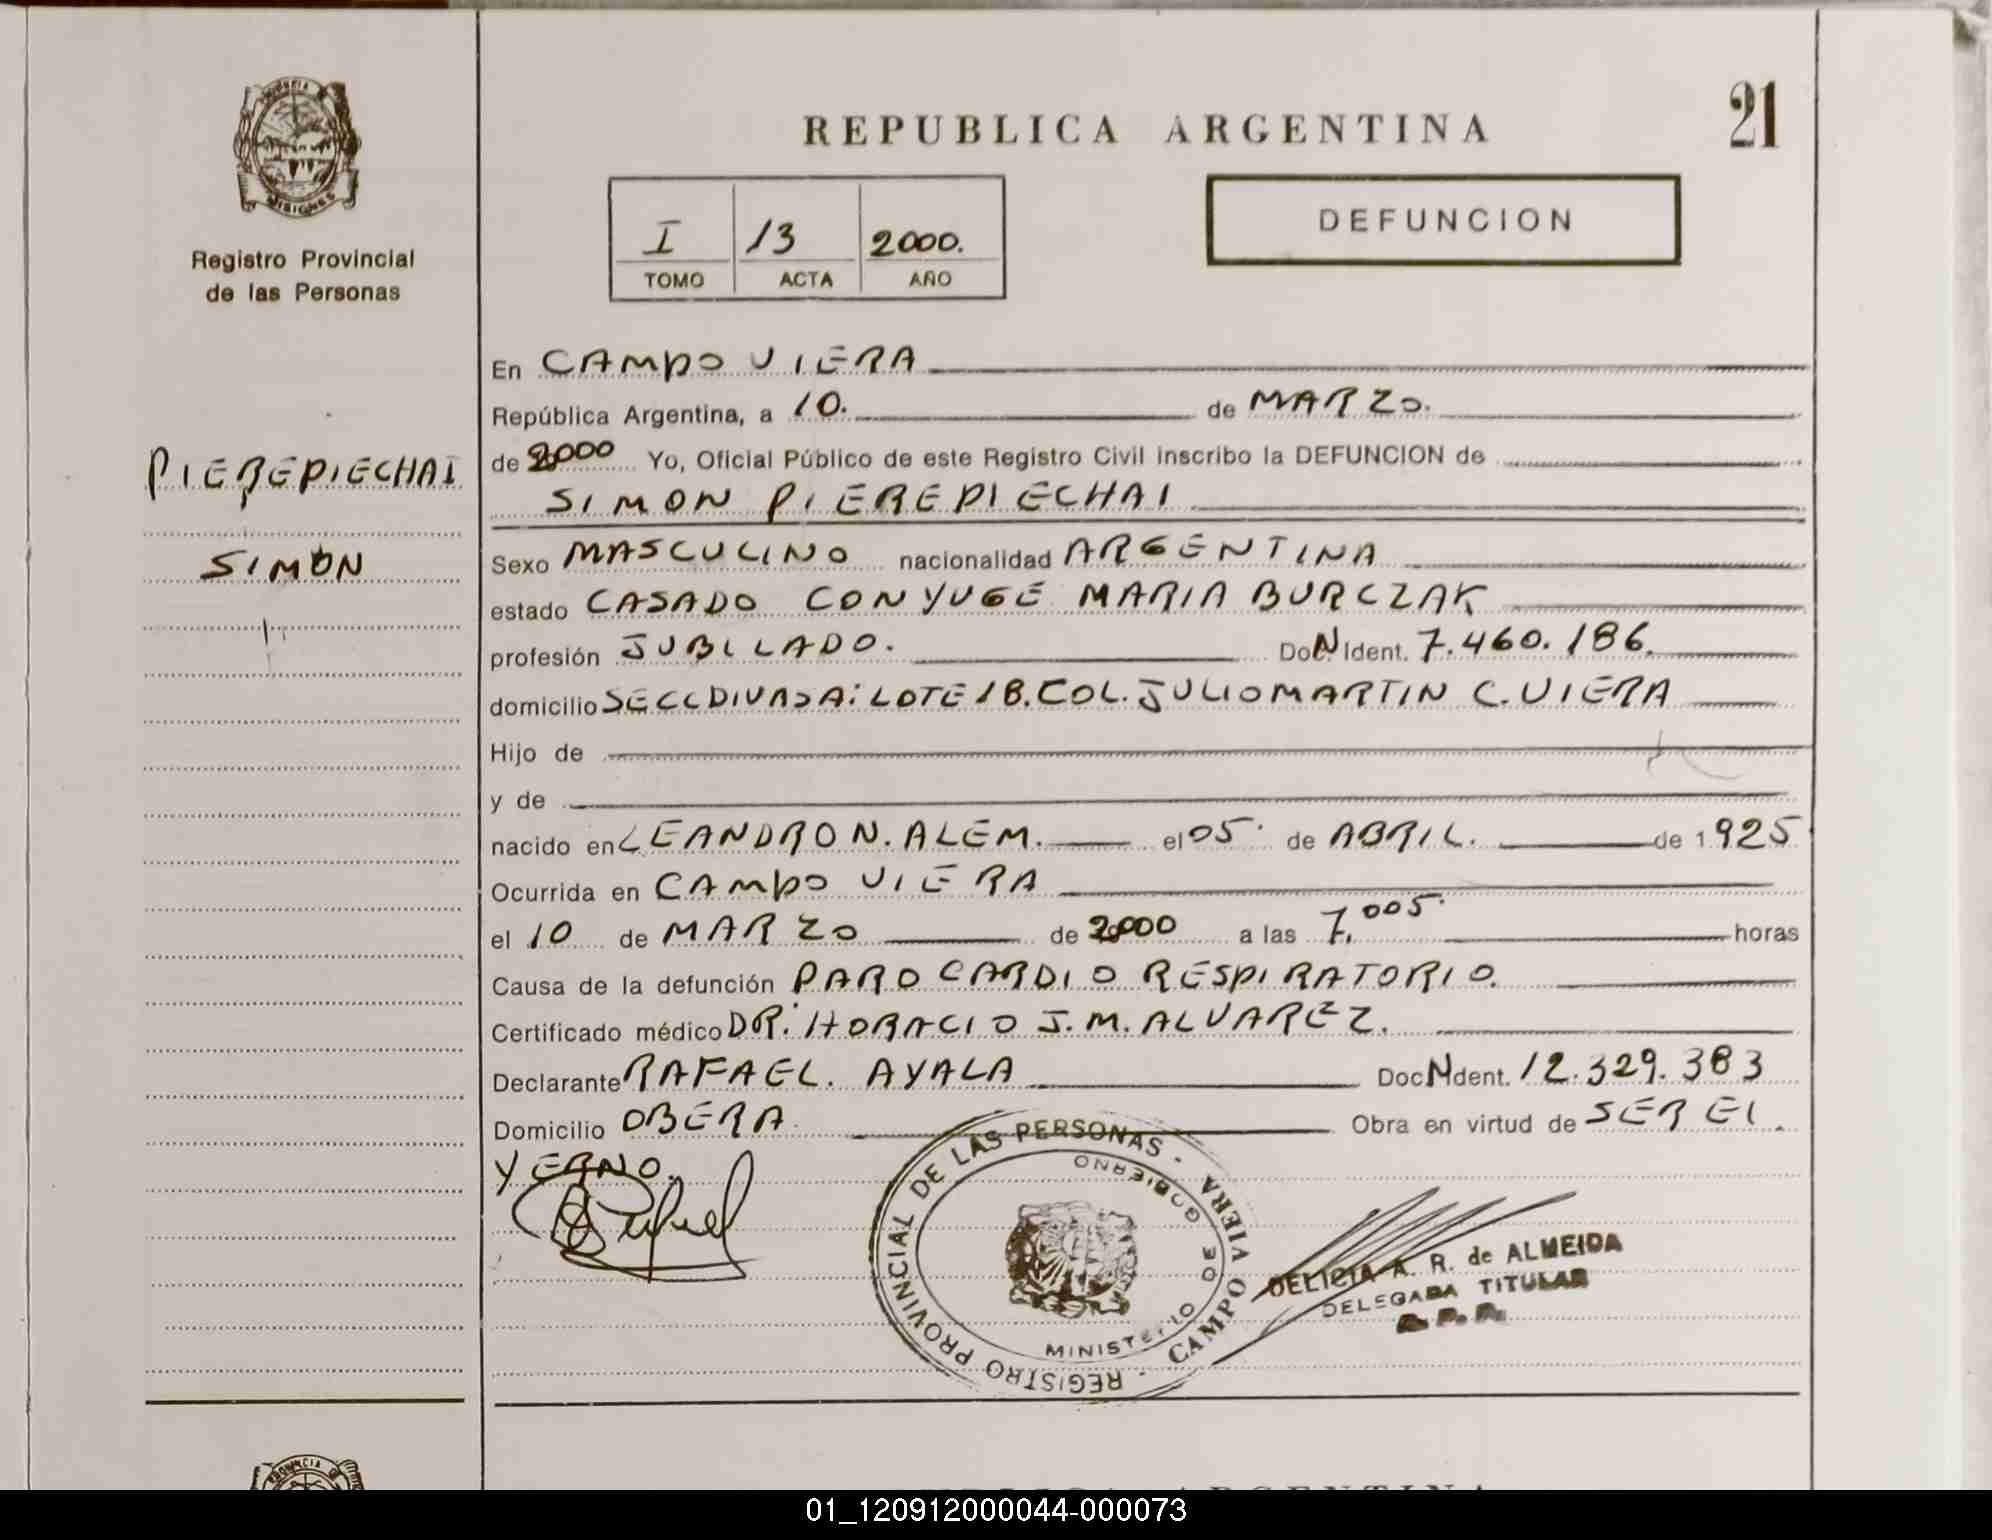 PROVINCIA DE
MISIONES
Registro Provincial
de las Personas
PIEREPIECHAI
SIMON
REPUBLICA ARGENTINA
21
I 13 2000.
TOMO ACTA AÑO
DEFUNCION
En CAMPO VIERA
República Argentina, a 10. de MARZO.
de 2000 Yo, Oficial Público de este Registro Civil inscribo la DEFUNCION de
SIMON PIEREPIECHAI
Sexo MASCULINO nacionalidad ARGENTINA
estado CASADO CONYUGE MARIA BURCZAK
profesión JUBILADO. Doc.N Ident. 7.460.186.
domicilio SECC DIVISA: LOTE 18. COL. JULIO MARTIN C. VIERA
Hijo de
y de
nacido en LEANDRO N. ALEM. el 05 de ABRIL. de 1925
Ocurrida en CAMPO VIERA
el 10 de MARZO de 2000 a las 7,005 horas
Causa de la defunción PARO CARDIO RESPIRATORIO.
Certificado médico DR. HORACIO J.M. ALVAREZ.
Declarante RAFAEL. AYALA Doc N dent. 12.329.383
Domicilio OBERA Obra en virtud de SER EL
YERNO.
REGISTRO PROVINCIAL DE LAS PERSONAS - CAMPO VIERA -
MINISTERIO DE GOBIERNO
DELICIA A. R. de ALMEIDA
DELEGADA TITULAR
R. P. P.
PROVINCIA DE
01_120912000044-000073